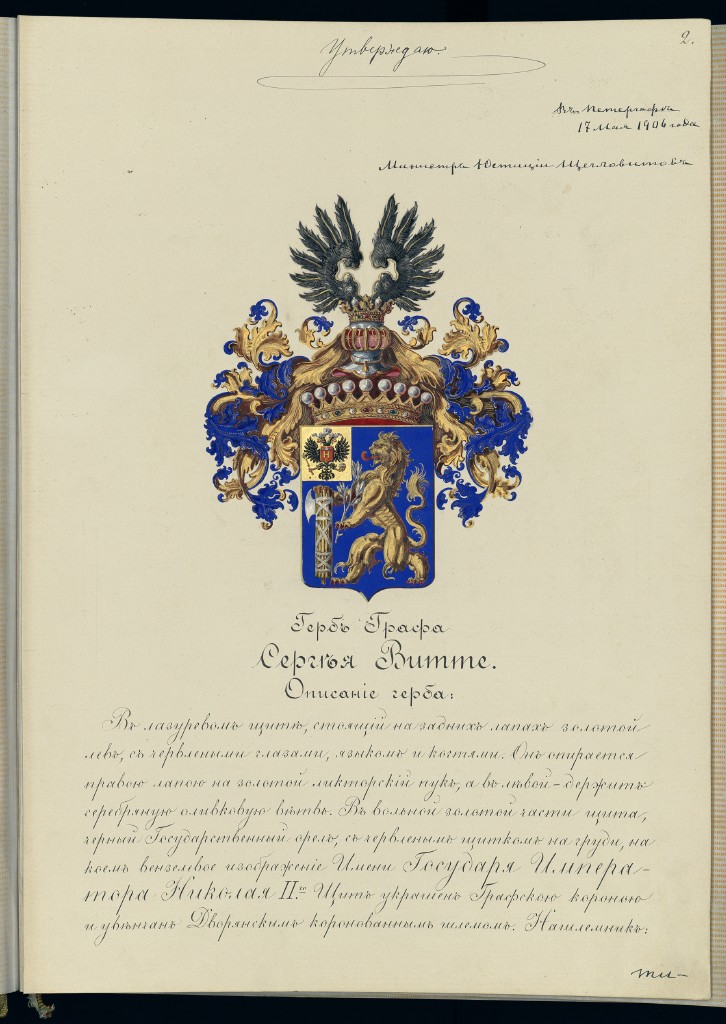 Утверждаю.
2.
Въ Петергофѣ
17 Мая 1906 года
Министръ Юстиціи Щегловитовъ
Н
II
Гербъ Графа
Сергѣя Витте.
Описаніе герба:
Въ лазуревомъ щитѣ, стоящій на заднихъ лапахъ золотой
левъ, съ червлеными глазами, языкомъ и когтями. Онъ опирается
правою лапою на золотой ликторскій пукъ, а въ лѣвой – держитъ
серебряную оливковую вѣтвь. Въ вольной золотой части щита,
черный Государственный орелъ, съ червленымъ щиткомъ на груди, на
коемъ вензелевое изображеніе Имени Государя Импера-
тора Николая II.го Щитъ украшенъ Графскою короною
и увѣнчанъ Дворянскимъ коронованнымъ шлемомъ. Нашлемникъ: